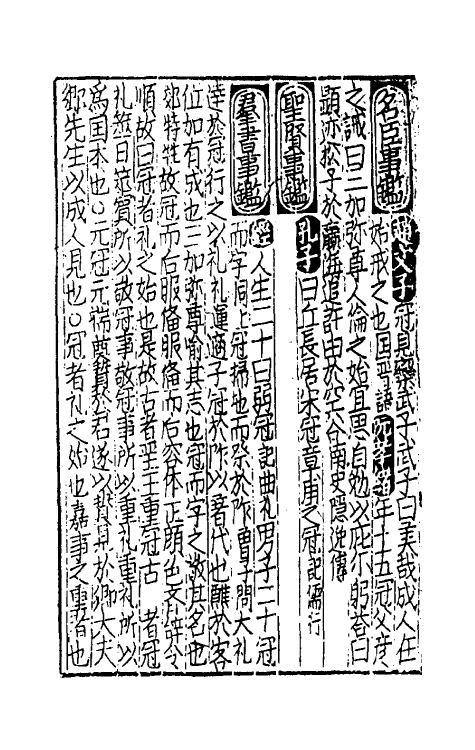 名臣事鑑 趙文子冠見欒武子武子曰美哉成人在
始戒之也囯晋語 阮孝緒年十五冠父彦
之誡曰三加弥尊人倫之始宜思自勉以庇尔躬荅曰
願亦松子於瀛海追許由於空谷南史隱逸傳
聖賢事鑑 孔子曰丘長居宋冠章甫之冠記儒行
羣書事鑑 經 人生二十曰弱冠記曲礼男子二十冠
而字同上冠掃也而祭於阼曽子問大礼
達於冠行之以礼礼運適子冠於阼以著代也醮於客
位加有成也三加弥尊喻其志也冠而字之敬其名也
郊特牲故冠而后服俻服俻而后容体正顔色齐辞令
順故曰冠者礼之始也是故古者聖王重冠古 者冠
礼筮日筮賔所以敬冠事敬冠事所以重礼重礼所以
為囯本也○元冠元端奠贄於君遂以贄見於鄉大夫
鄉先生以成人見也○冠者礼之始也嘉事之重者也